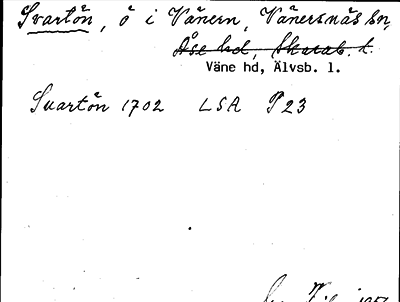 Svartön, ö i Vänern, Vänersnäs sn,
Åse hd, Skarab. l.
Väne hd, Älvsb. l.
Svartön 1702 LSA P23